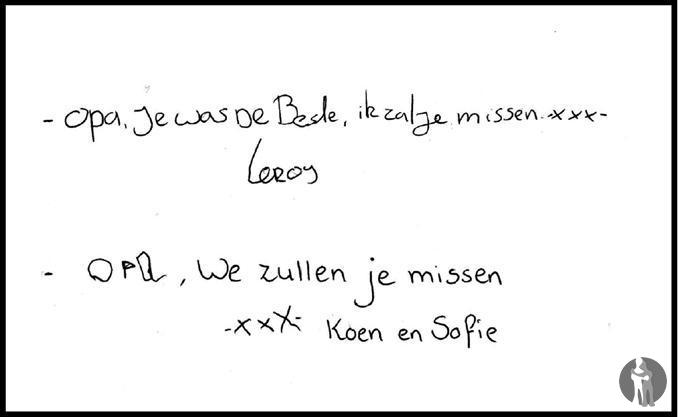 - Opa, Je was De Beste, ik zal je missen -xxx-
Leroy
- OPA, We zullen je missen
-xxX- Koen en Sofie